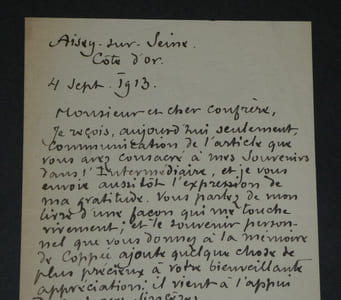 Aisey-sur-Seine.
Côte d'or.
4 Sept. 1913.
Monsieur et cher confrère,
Je reçois, aujourd'hui seulement,
communication de l'article que
vous avez consacré à mes Souvenirs
dans l'Intermédiaire, et je vous
envoie aussitôt l'expression de
ma gratitude. Vous parlez de mon
livre d'une façon qui me touche
vivement; et le souvenir person-
nel que vous donnez à la mémoire
de Coppée ajoute quelque chose de
plus précieux à votre bienveillante
appréciation; il vient à l'appui